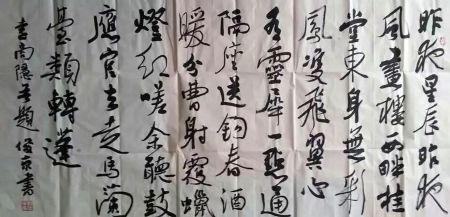 昨夜星辰昨夜
風畫樓西畔桂
堂東身無彩
鳳雙飛翼心
有靈犀一點通
隔座送鈎春酒
暖分曹射覆蠟
燈紅嗟余聽鼓
應官去走馬蘭
臺類轉蓬
李商隱無題 書